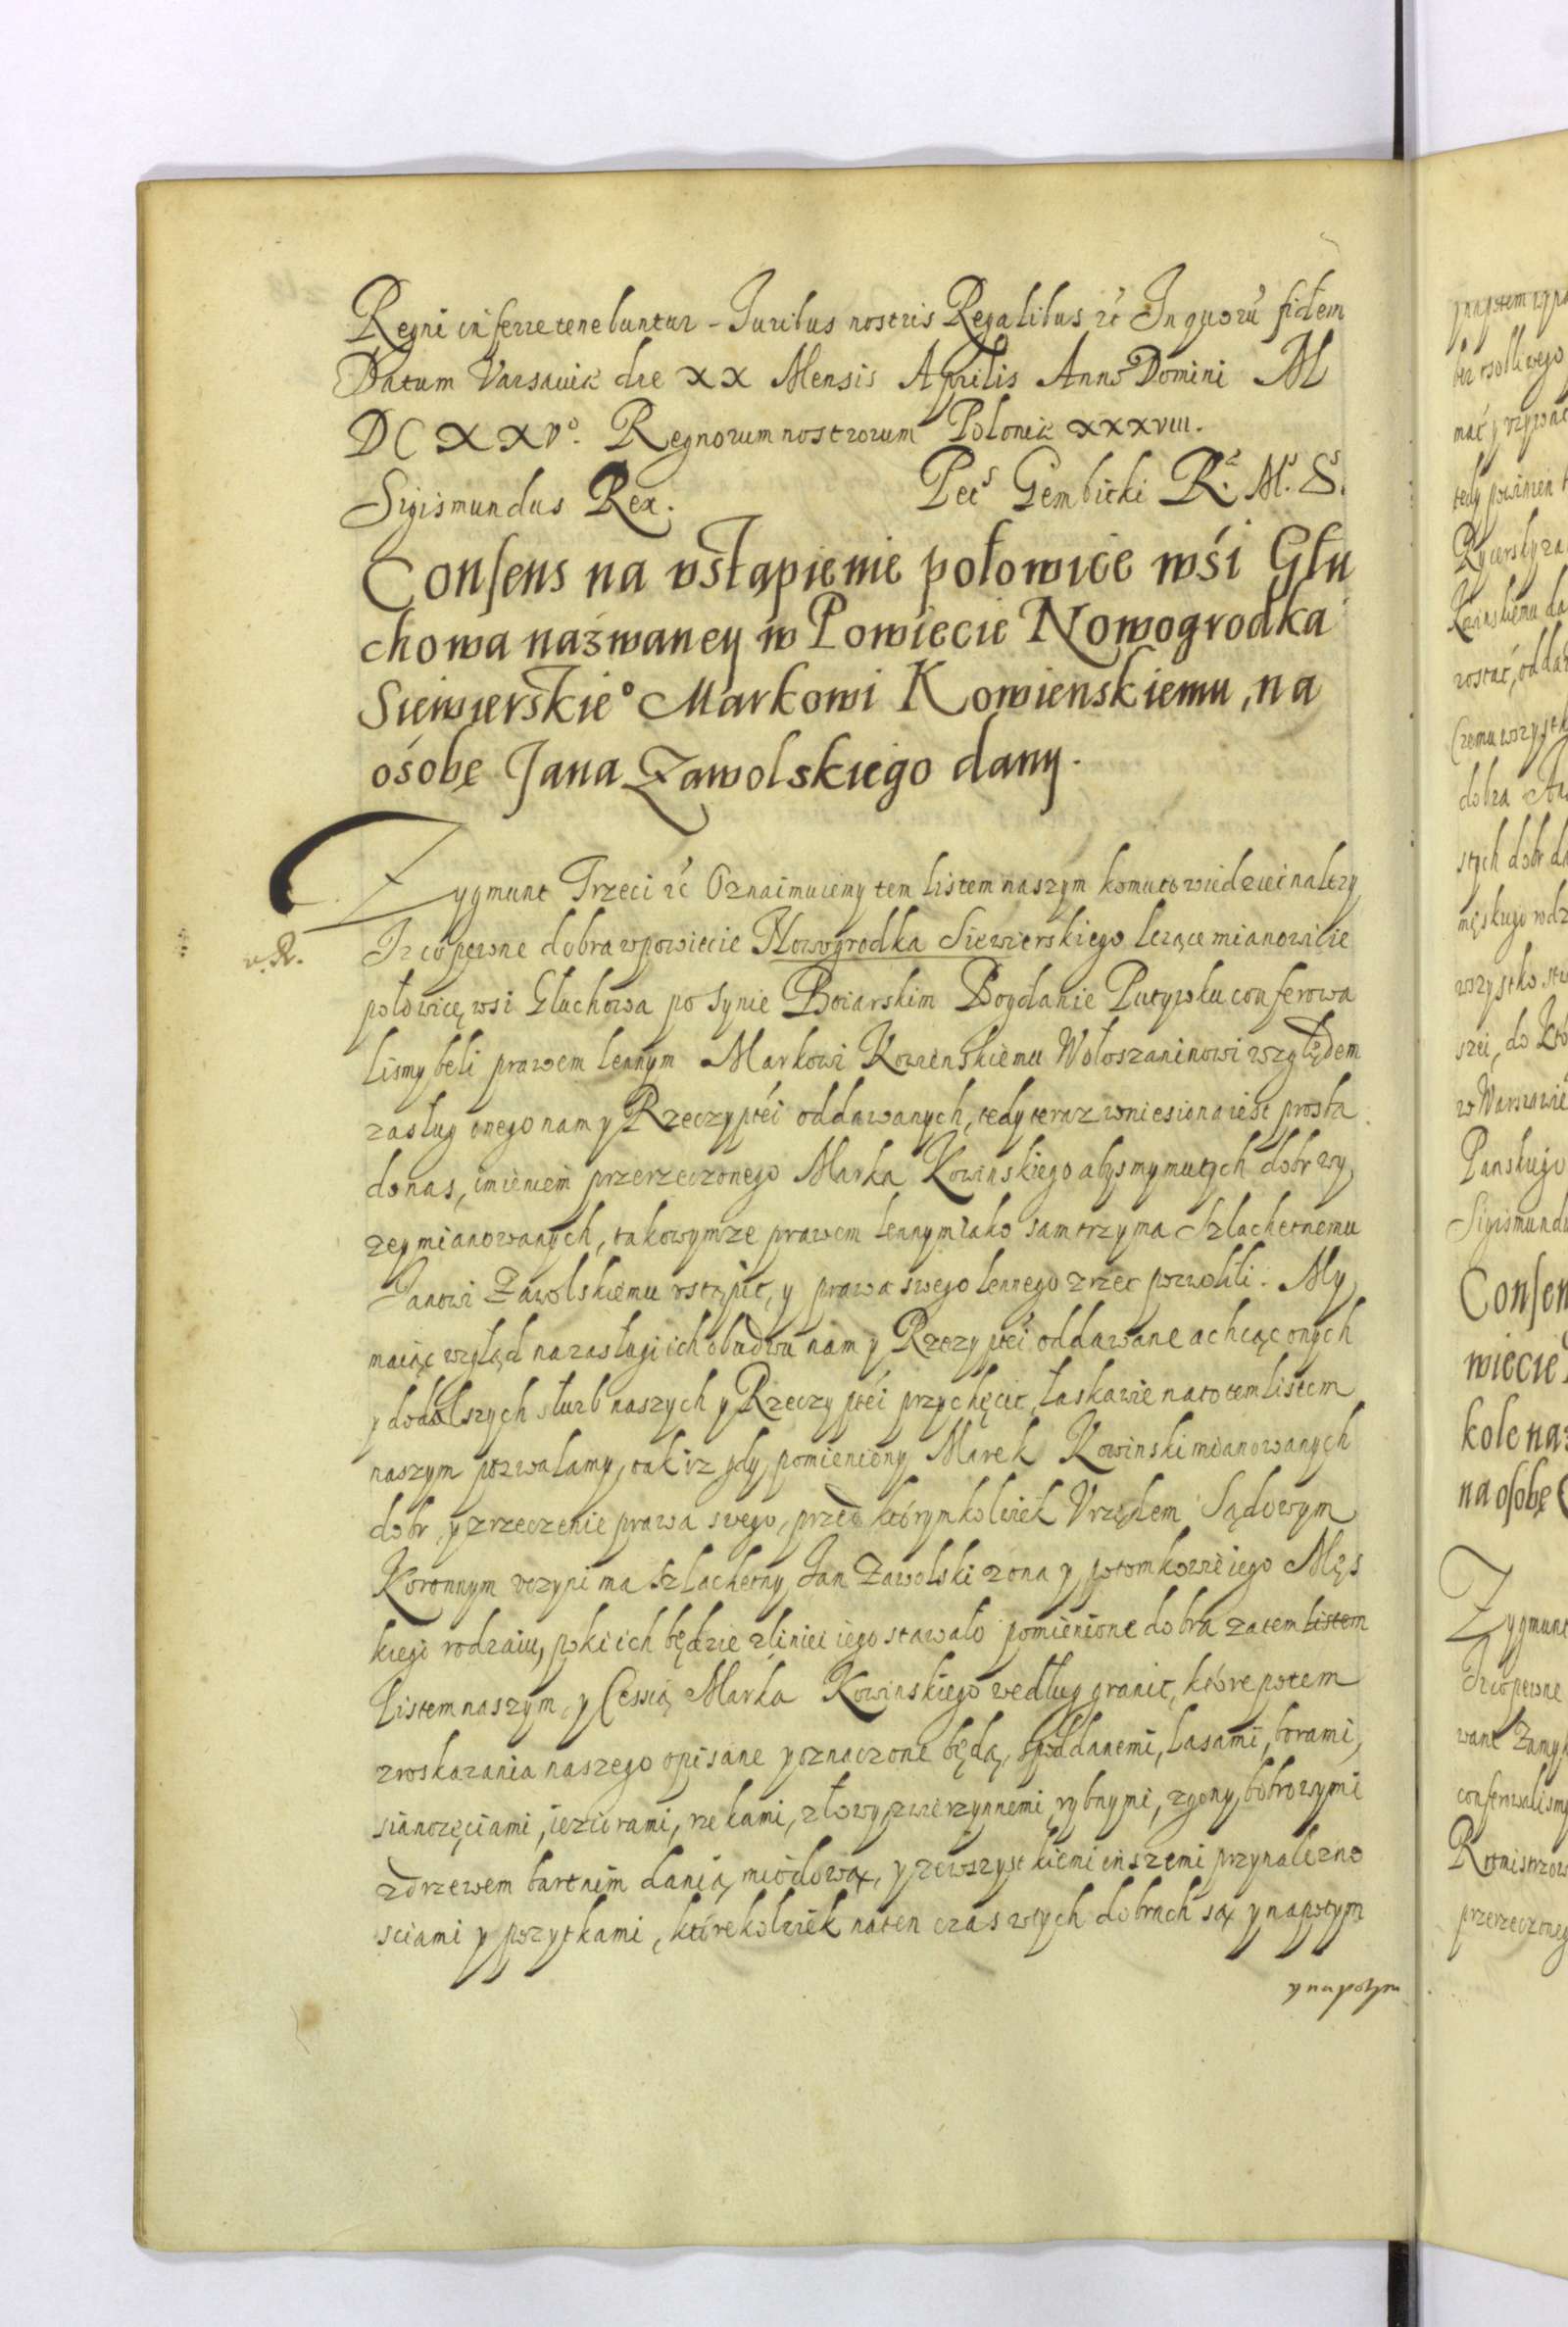 Regni inferre tenebuntur - Juribus nostris Regalibus etc In quorũ fidem
Datum Varsaviæ die XX Mensis Aprilis Anno Domini M
DCXXVº. Regnorum nostrorum Poloniæ XXXVIII.
Sigismundus Rex. Petˢ Gembicki R. M. S.
Consens na vstąpienie połowice wśi Głu
chowa nazwaney w Powiecie Nowogrodka
Siewierskieº Markowi Kowienskiemu, na
osobę Jana Zawolskiego dany.
Zygmunt Trzeci etc Oznaimuiemy tem listem naszym komu to wiedziec nalezy
Iz co pewne dobra w powiecie Nowogrodka Siewierskiego lezące mianowicie
połowicę wsi Głuchowa po Synie Boiarskim Bogdanie Putywlu conferowa
lismy beli prawem lennym Markowi Kowienskiemu Wołoszaninowi względem
zasług onego nam y Rzeczypltéi oddawanych, tedy teraz wniesiona iest prozba
do nas, imieniem przerzeczonego Marka Kowinskiego abysmy mu tych dobr wy
zey mianowanych, takowymze prawem lennym iako sam trzyma Szlachetnemu
Janowi Zawolskiemu vstąpic, y prawa swego lennego zrzec pozwolili. My
maiąc wzgląd na zasługi ich obudwu nam y Rzeczyptéi oddawane a chcąc onych
y do dalszych słuzb naszych y Rzeczyptéi przychęcic, łaskawie na to tem listem
naszym pozwalamy, tak iz gdy pomieniony Marek Kowinski mianowanych
dobr y zrzeczenie prawa swego, przed którymkolwiek Vrzędem Sądowym
Koronnym vczyni ma Szlachetny Jan Zawolski zona y potomkowie iego Męs
kiego rodzaiu, poki ich będzie z liniei iego stawało pomienione dobra za tem listem
Listem naszym, y Cessią Marka Kowinskiego według granic, które potem
z roskazania naszego opisane y oznaczone będą, s poddanemi, lasami, borami,
sianozęciami, ieziorami, rzekami, z łowy zwierzynnemi, rybnymi, z gony bobrowymi
z drzewem bartnim danią miodową, y ze wszystkiemi inszemi przynalezno
sciami y pozytkami, którekolwiek na ten czas w tych dobrach są y napotym
y napotym